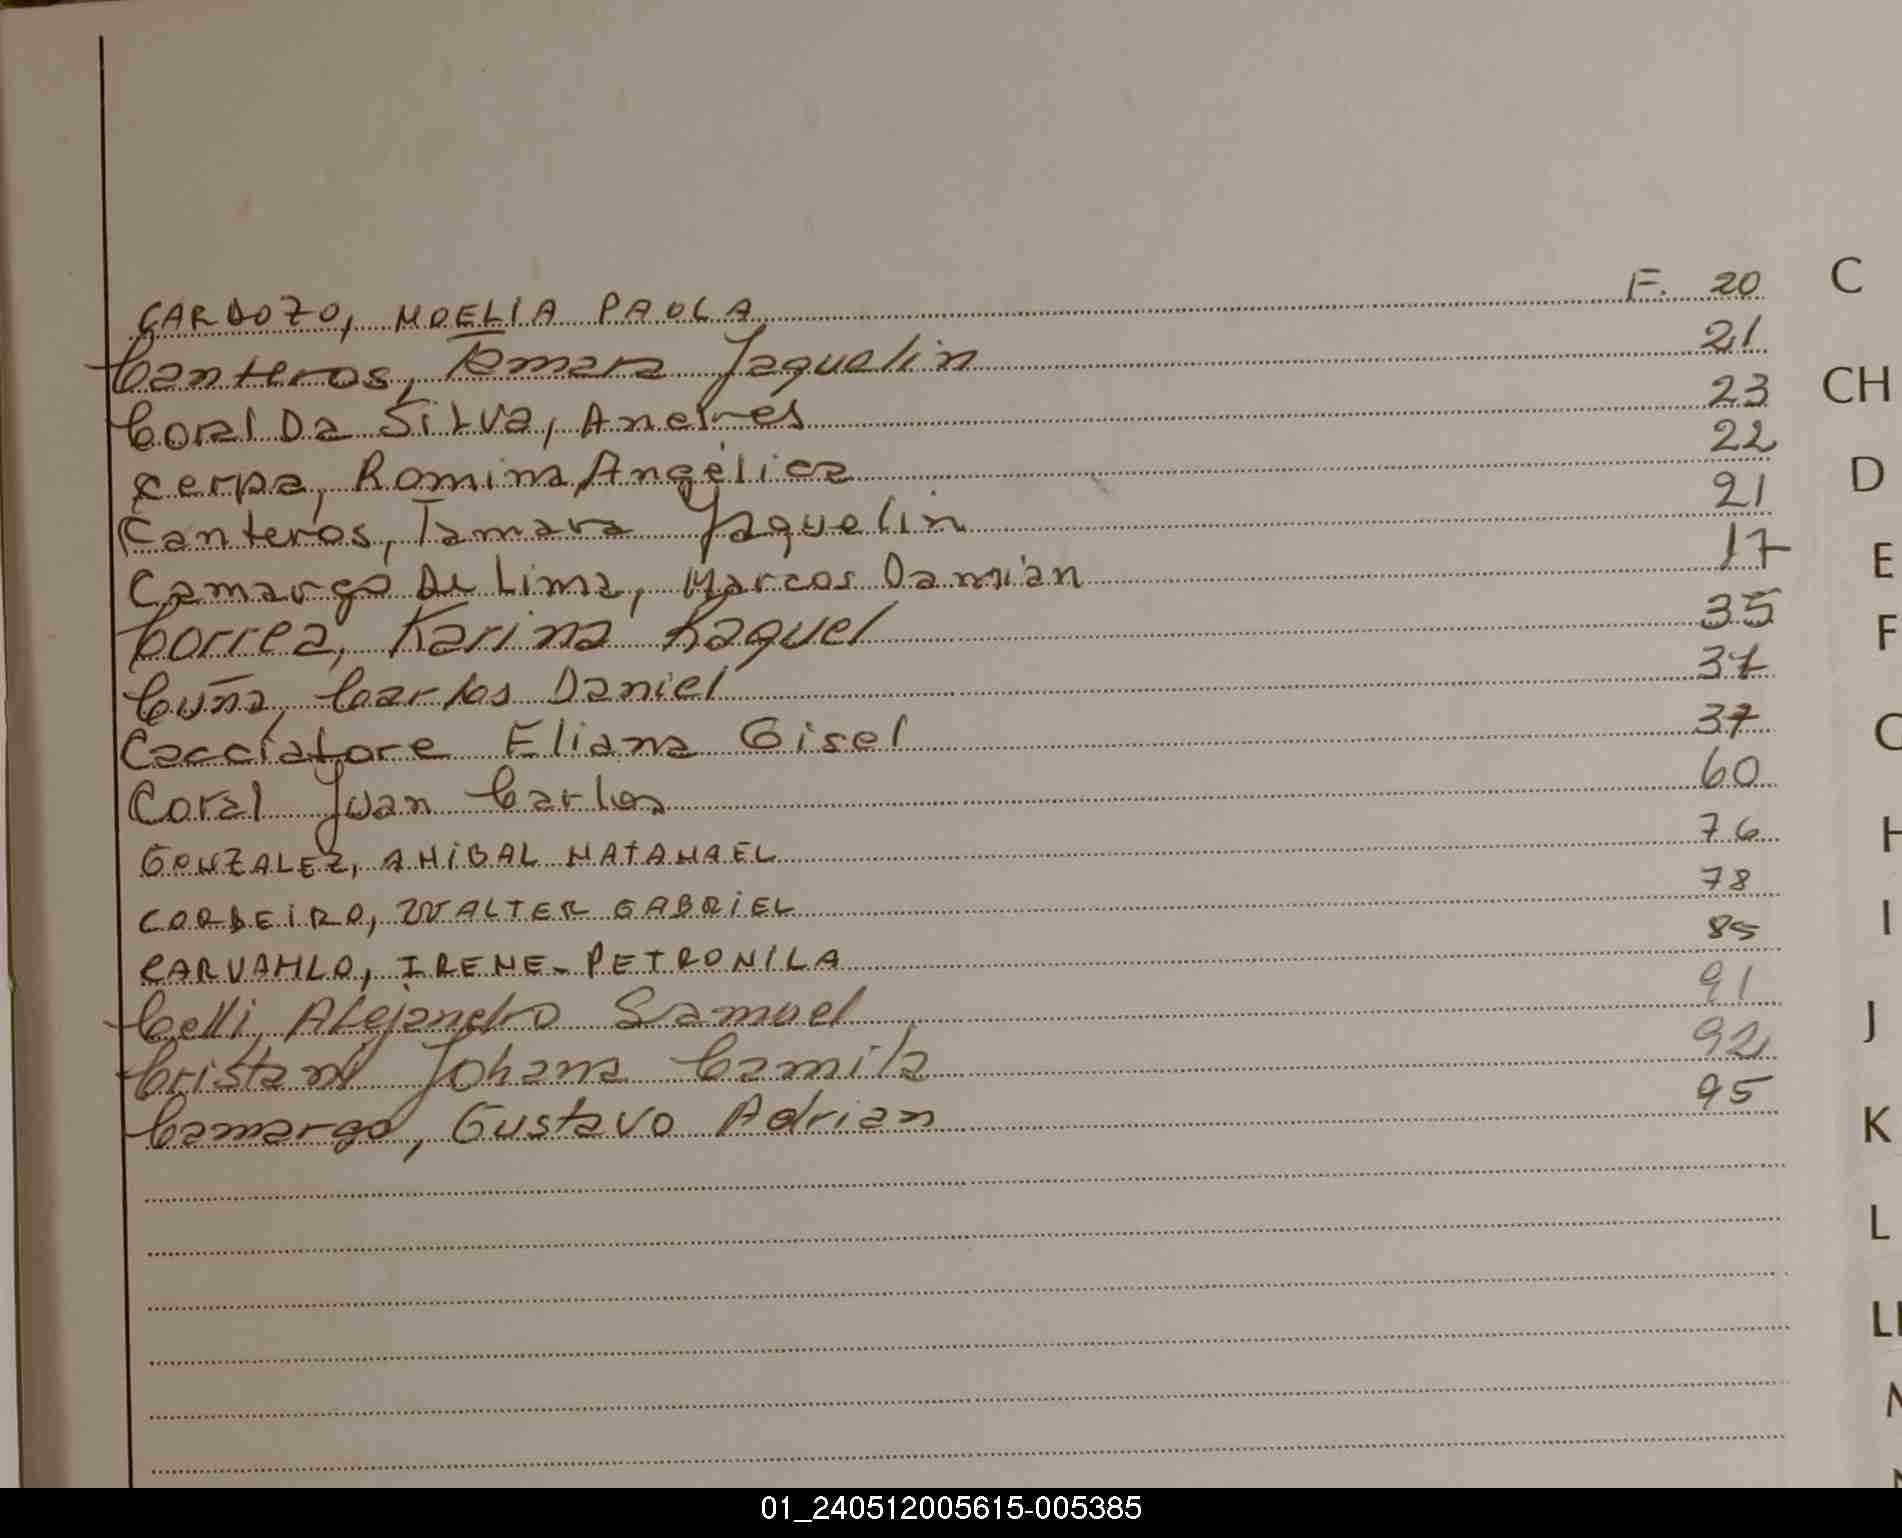 CARDOZO, NOELIA PAOLA F. 20
Canteros, Tamara Jaquelin 21
Coral Da Silva, Andres 23
Cerpa, Romina Angélica 22
Canteros, Tamara Jaquelin 21
Camargo De Lima, Marcos Damián 17
Correa, Karina Raquel 35
Cuña, Carlos Daniel 37
Cacciatore Eliana Gisel 37
Coral Juan Carlos 60
GONZALEZ, ANIBAL NATANAEL 76
CORDEIRO, WALTER GABRIEL 78
CARVAHLO, IRENE-PETRONILA 85
Celli, Alejandro Samuel 91
Cristani Johana Camila 92
Camargo, Gustavo Adrian 95
C
CH
D
E
F
H
I
J
K
L
01_240512005615-005385